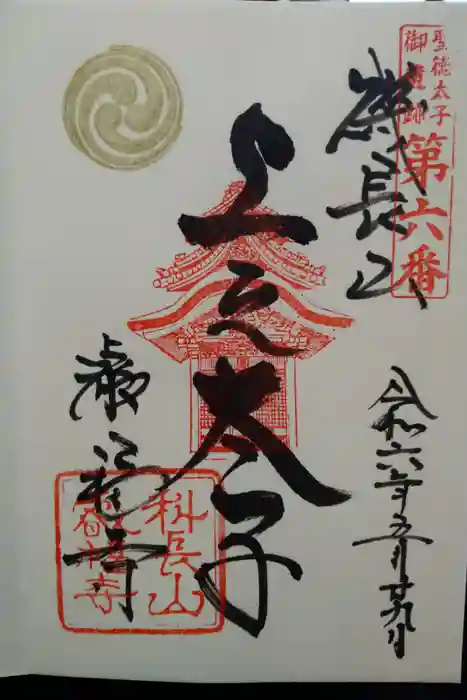 聖徳太子
御遺跡
第六番
科長山
上之太子
叡福寺
令和六年五月廿九日
科長山
叡福寺